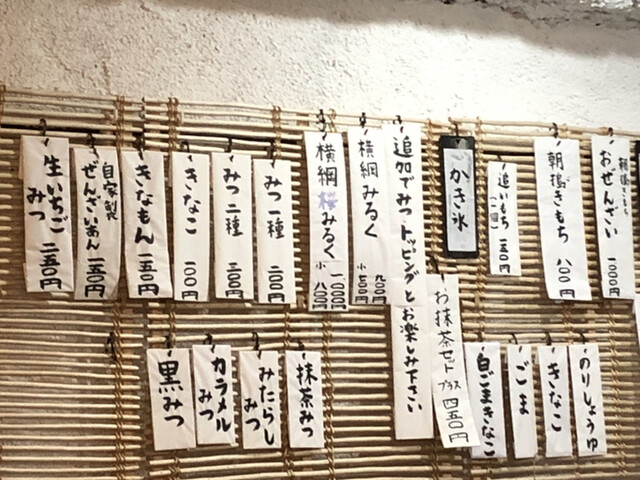 おぜんざい 一、〇〇〇円
朝搗きもち 八〇〇円
追いもち 一五〇円
(一個)
かき氷
追加でみつ・トッピングとお楽しみ下さい
横綱みるく
九〇〇円
小 七〇〇円
横綱桜みるく
一、〇〇〇円
小 八〇〇円
みつ一種 二〇〇円
みつ二種 三〇〇円
きなこ 一〇〇円
きなもん 一五〇円
自家製
ぜんざいあん 一五〇円
生いちご
みつ 二五〇円
のりしょうゆ
きなこ
ごま
白ごまきなこ
お抹茶セット プラス 四五〇円
抹茶みつ
みたらし
みつ
カラメル
みつ
黒みつ